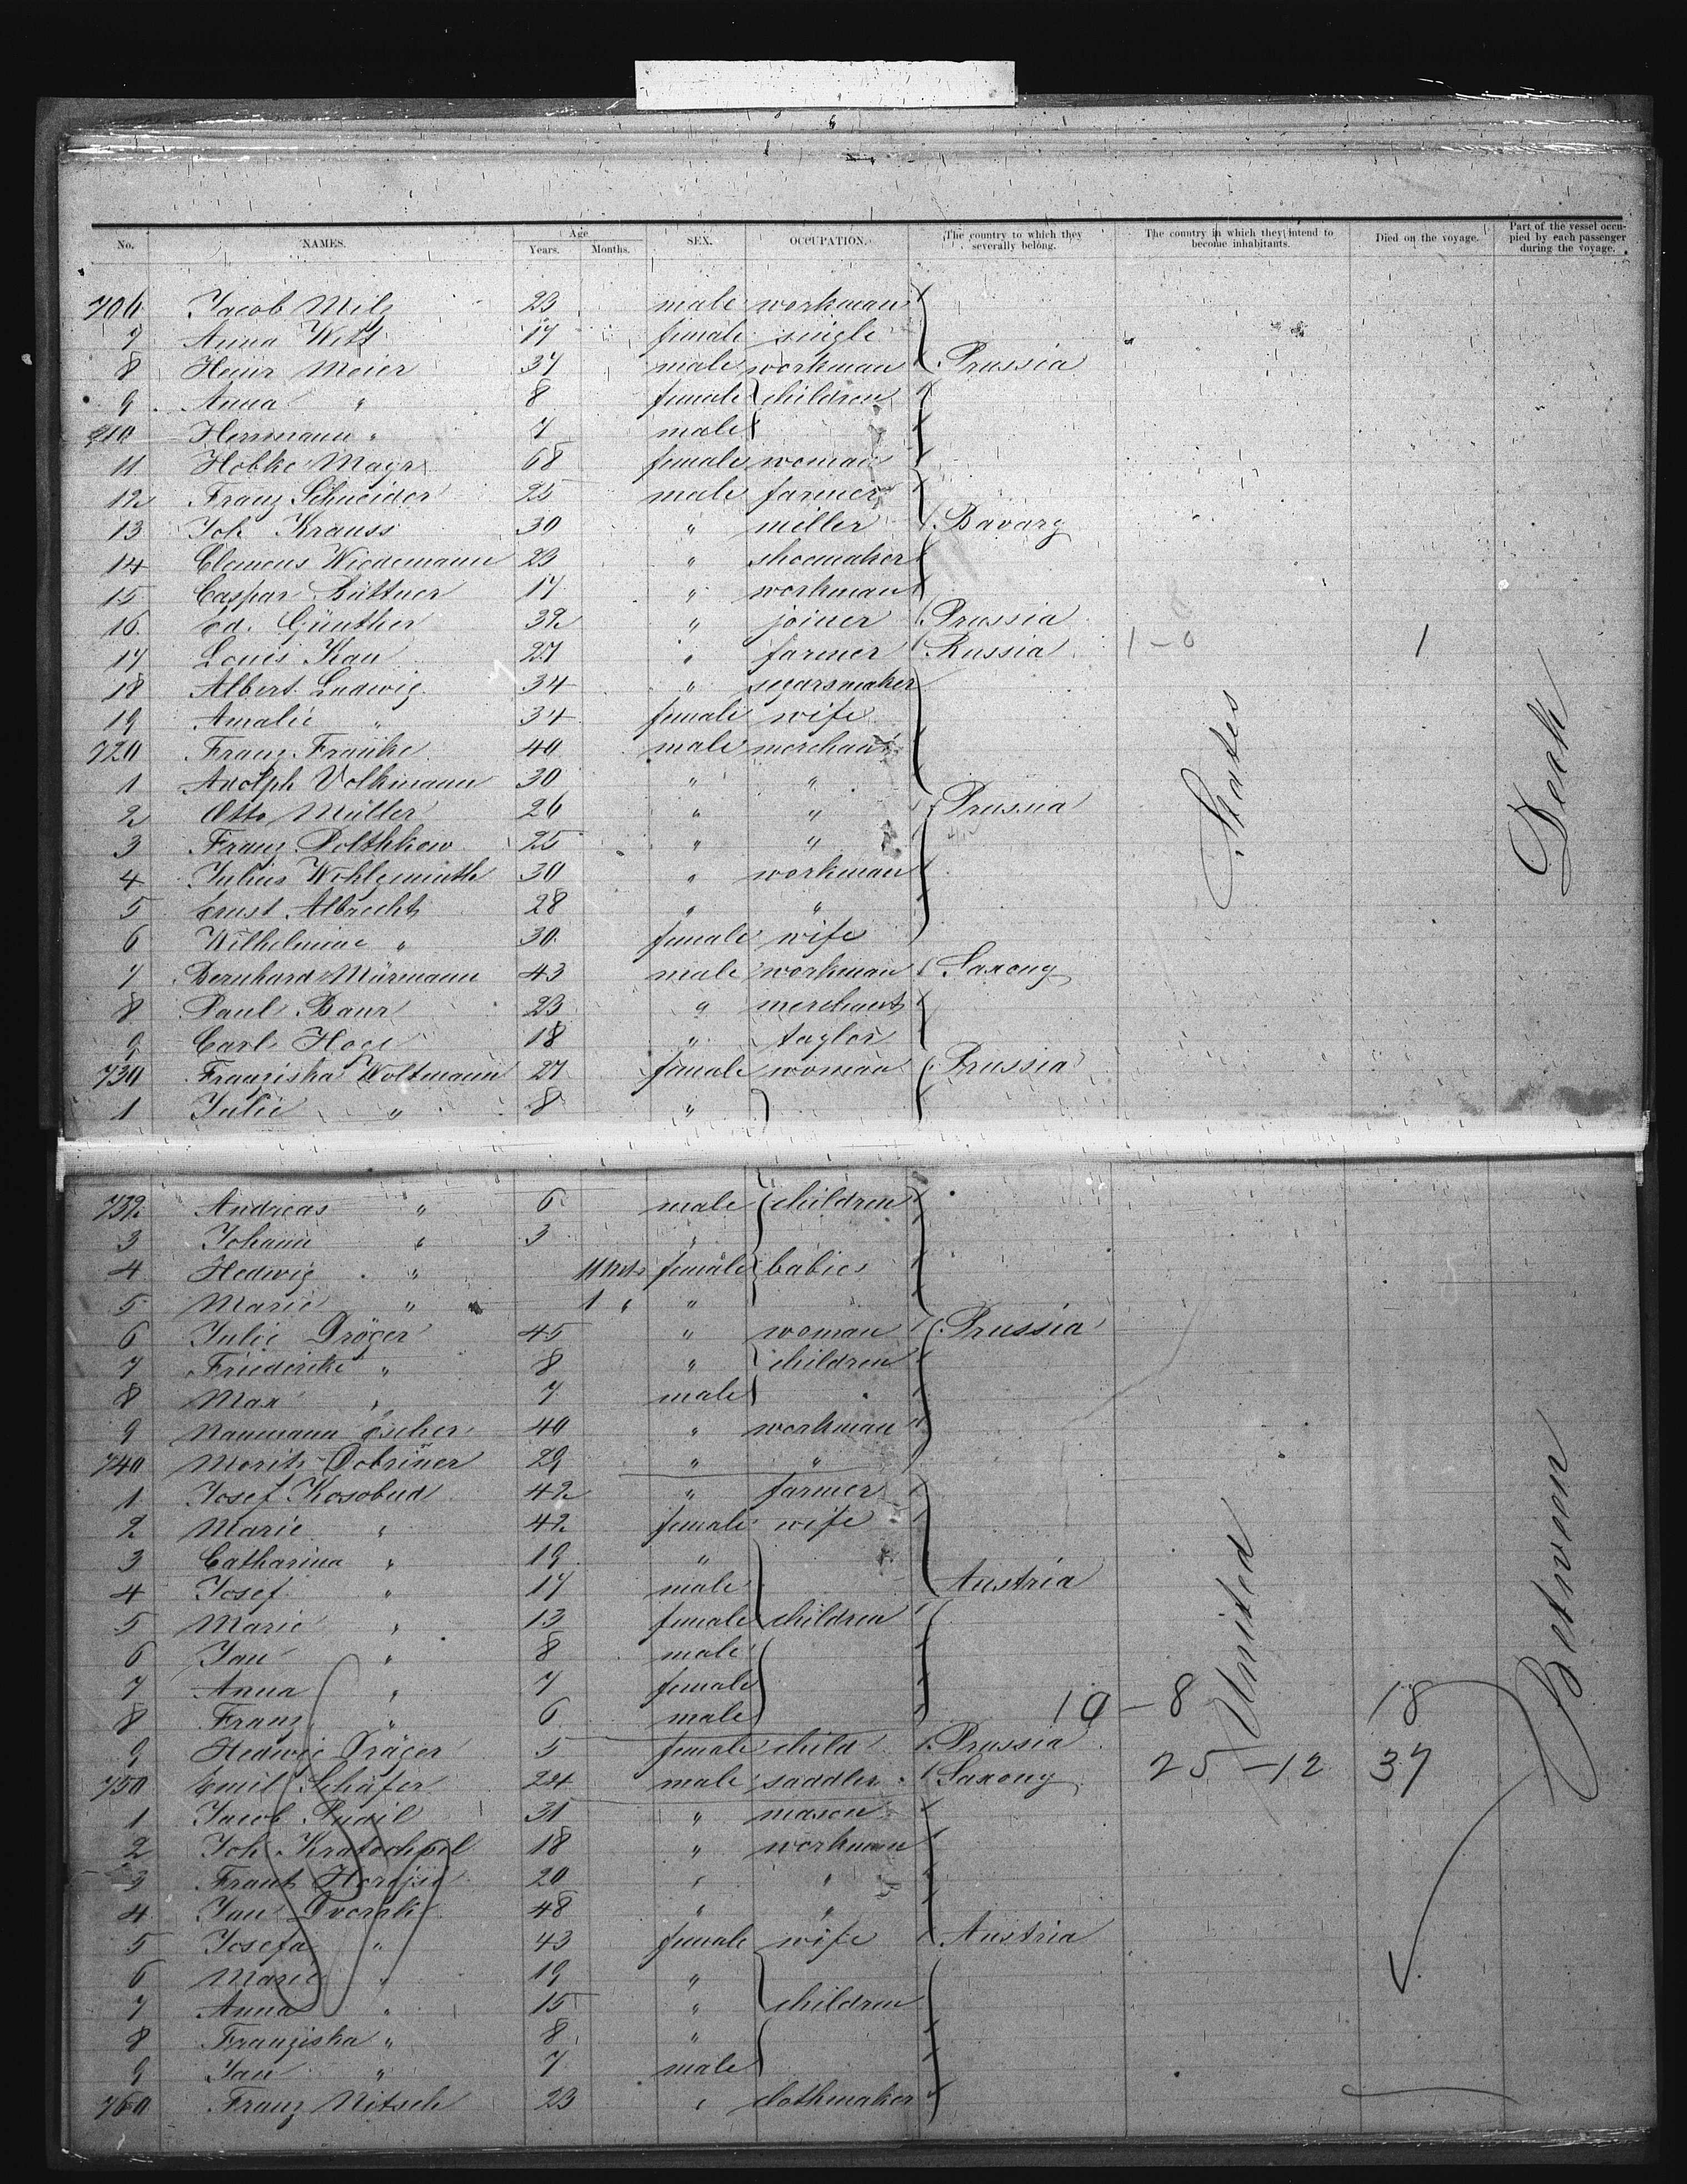 No. NAMES. Age Years. Months. SEX. OCCUPATION. The country to which they severally belong. The country in which they intend to become inhabitants. Died on the voyage. Part of the vessel occupied by each passenger during the voyage.
706 Jacob Milz 23 male workman
7 Anna Witt 17 female single
8 Heinr Meier 37 male workman Prussia
9 Anna " 8 female children
710 Herrmann " 7 male
11 Hobke Mayr 68 female woman
12 Franz Schneider 25 male farmer
13 Joh Krauss 30 " miller Bavary
14 Clemens Wiedemann 23 " shoemaker
15 Caspar Büttner 17 " workman
16 Ed. Günther 32 " joiner Prussia
17 Louis Kau 27 " farmer Russia 1-0 1
18 Albert Ludwig 34 " segarsmaker
19 Amalie " 34 female wife
720 Franz Franke 40 male merchant
1 Adolph Volkmann 30 " "
2 Otto Müller 26 " " Prussia
3 Franz Polthkow 25 " "
4 Julius Wohlgemuth 30 " workman
5 Ernst Albrecht 28 " "
6 Wilhelmine " 30 female wife
7 Bernhard Mürmann 43 male workman Saxony
8 Paul Baur 23 " merchant
9 Carl 18 " taylor
730 Franziska Woltmann 27 female woman Prussia
1 Julie " 8 "
732 Andreas " 6 male children
3 Johann " 3 "
4 Hedwig " 11 Mts female babies
5 Marie " 1 " "
6 Julie Dröger 45 " woman Prussia
7 Friederike " 8 " children
8 Max " 7 male
9 Naumann Escher 40 " workman
740 Moritz Dobriner 29 " "
1 Josef Kosobud 42 " farmer
2 Marie " 42 female wife
3 Catharina " 19 "
4 Josef " 17 male Austria
5 Marie " 13 female children
6 Jan " 8 male
7 Anna " 7 female
8 Franz " 6 male 10-8 18
9 Hedwig Dräger 5 female child Prussia
750 Emil Schäfer 24 male saddler Saxony 25-12 37
1 Jacob 31 " mason
2 Joh Kratochvil 18 " workman
3 Frantz 20 " "
4 Jan Dvorak 48 " "
5 Josefa " 43 female wife Austria
6 Marie " 19 "
7 Anna " 15 " children
8 Franziska " 8 "
9 Jan " 7 male
760 Franz Nitsch 23 " clothmaker
United States
Between Deck